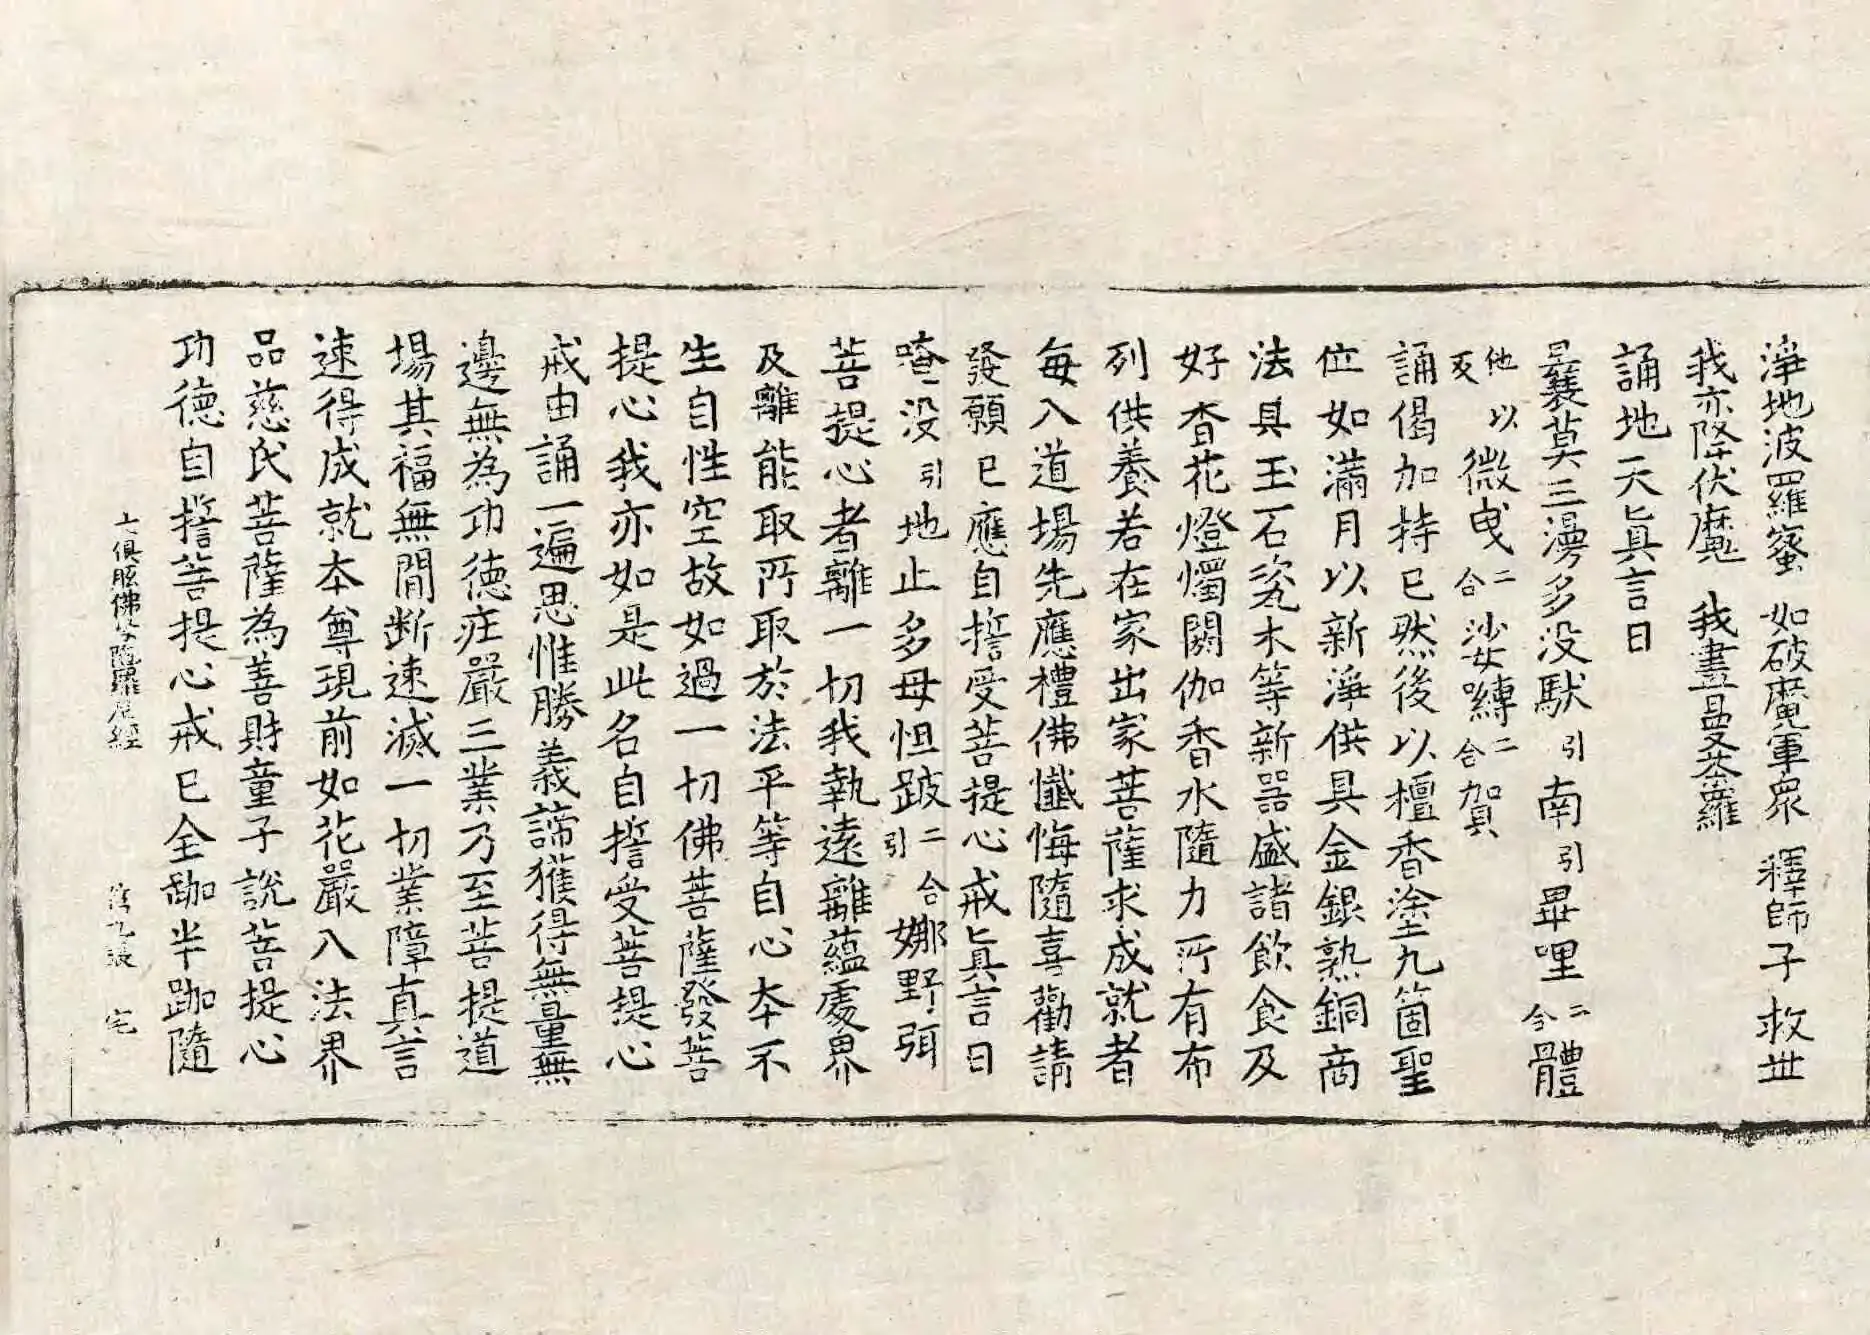 淨地波羅蜜 如破魔軍眾 釋師子救丗
我亦降伏魔 我畫曼荼羅
誦地天真言曰
曩莫三漫多没馱引南引畢哩二合體
他以反微曳二合娑嚩二合賀
誦偈加持已然後以檀香塗九箇聖
位如滿月以新淨供具金銀熟銅商
法具玉石瓷木等新器盛諸飲食及
好香花燈燭閼伽香水隨力所有布
列供養若在家出家菩薩求成就者
每入道場先應禮佛懺悔隨喜勸請
發願已應自誓受菩提心戒真言曰
唵一没引地止多母怛跛二合引娜野弭
菩提心者離一切我執遠離蘊處界
及離能取所取於法平等自心本不
生自性空故如過一切佛菩薩發菩
提心我亦如是此名自誓受菩提心
戒由誦一遍思惟勝義諦獲得無量無
邊無為功德莊嚴三業乃至菩提道
場其福無間断速滅一切業障真言
速得成就本尊現前如花嚴入法界
品慈氏菩薩為善財童子說菩提心
功德自誓菩提心戒已全跏半跏隨
七俱胝佛母陁羅尼經 第九張 宅